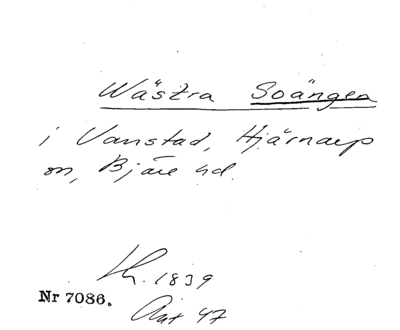 Wästra Soängen
i Vanstad, Hjärnarp
sn, Bjäre hd.
Lk. 1839
Nr 7086.
Akt 47